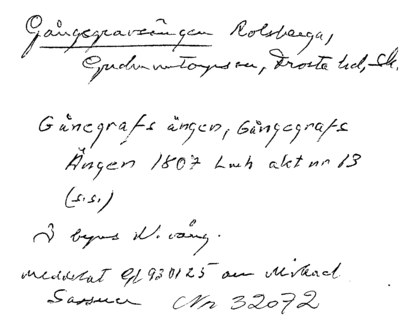 Gångsgravsängen Rolsberga,
Gudmuntorps sn, Frosta hd, Sk.
Gånegrafs ängen, Gångegrafs
Ängen 1807 Lmh akt nr 13
(s.s.)
I byns N. vång.
meddelat 930125 av Mikael
Nr 32072